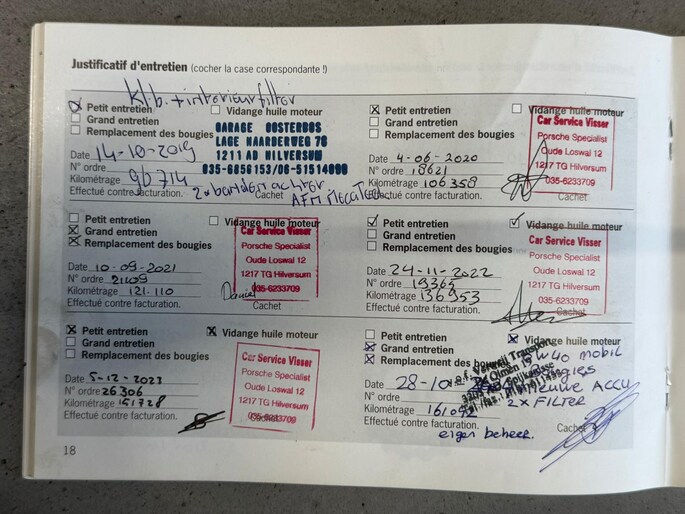 Justificatif d'entretien (cocher la case correspondante !)
kl.b. + interieurfilter
Petit entretien
Vidange huile moteur
Grand entretien
Remplacement des bougies
GARAGE OOSTERBOS
LAGE NAARDERWEG 78
1211 AD HILVERSUM
035-6856153/06-51514890
Date 14-10-2019
N° ordre
Kilométrage 96714
2x banden achter
Effectué contre facturation.
Cachet
Petit entretien
Vidange huile moteur
Grand entretien
Remplacement des bougies
Car Service Visser
Porsche Specialist
Oude Loswal 12
1217 TG Hilversum
035-6233709
Date 4-06-2020
N° ordre 18621
Kilométrage 106358
Effectué contre facturation.
Cachet
Petit entretien
Vidange huile moteur
Grand entretien
Remplacement des bougies
Car Service Visser
Porsche Specialist
Oude Loswal 12
1217 TG Hilversum
035-6233709
Date 10-09-2021
N° ordre 21109
Kilométrage 121.110
Daniel
Effectué contre facturation.
Cachet
Petit entretien
Vidange huile moteur
Grand entretien
Remplacement des bougies
Car Service Visser
Porsche Specialist
Oude Loswal 12
1217 TG Hilversum
035-6233709
Date 24-11-2022
N° ordre 19365
Kilométrage 136953
Effectué contre facturation.
Cachet
Petit entretien
Vidange huile moteur
Grand entretien
Remplacement des bougies
Car Service Visser
Porsche Specialist
Oude Loswal 12
1217 TG Hilversum
035-6233709
Date 5-12-2023
N° ordre 26306
Kilométrage 151728
Effectué contre facturation.
Cachet
Petit entretien
Vidange huile moteur
Grand entretien
Remplacement des bougies
W40 mobil
Date 28-10
N° ordre
ACCU
2x FILTER
Kilométrage
Effectué contre facturation.
Cachet
eigen beheer.
18